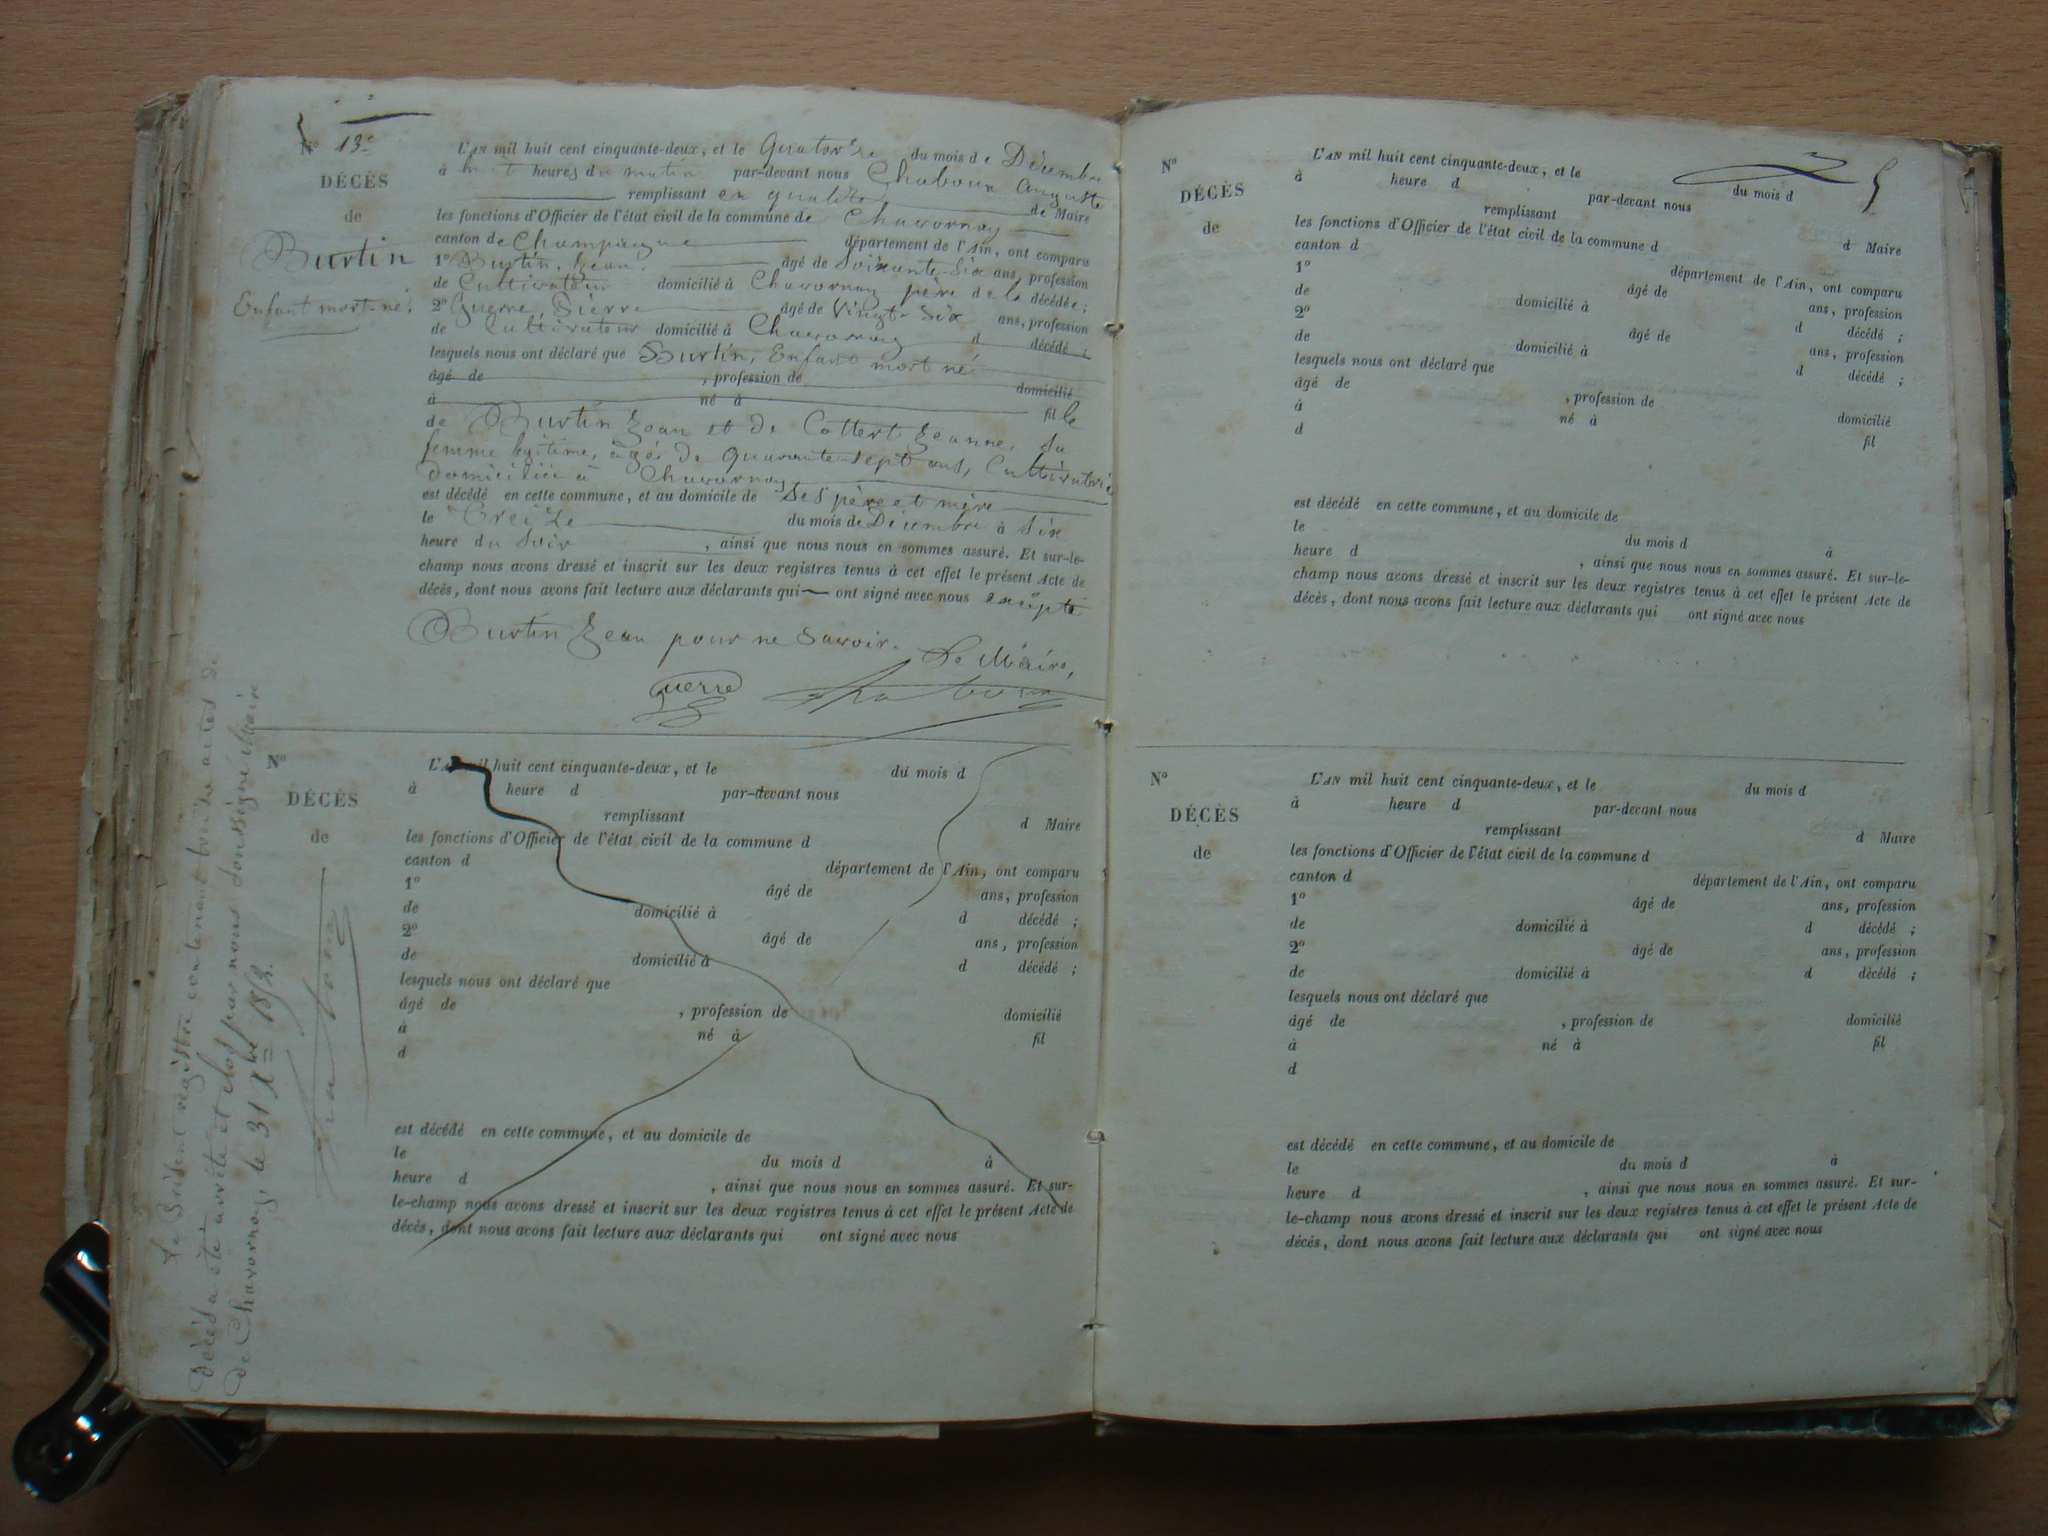 N° 13e
DÉCÈS
de
Burtin
Enfant mort-né.
L'AN mil huit cent cinquante-deux, et le Quatorze du mois de Décembre
à huit heures du matin par-devant nous Chaboux Auguste
remplissant en qualité de Maire
les fonctions d'Officier de l'état civil de la commune de Chavornay
canton de Champagne département de l'Ain, ont comparu
1° Burtin, Jean. âgé de Soixante-Six ans, profession
de Cultivateur domicilié à Chavornay père de la décédée;
2° Guerre, Pierre âgé de Vingt-Six ans, profession
de Cultivateur domicilié à Chavornay d décédé ;
lesquels nous ont déclaré que Burtin, Enfant mort né
âgé de , profession de domicilié
à né à fille
de Burtin Jean et de Cottert Jeanne, sa
femme légitime, âgée de Quarante-sept ans, Cultivatrice
domiciliée à Chavornay
est décédé en cette commune, et au domicile de ses père et mère
le Treize du mois de Décembre à Six
heure du Soir , ainsi que nous nous en sommes assuré. Et sur-le-
champ nous avons dressé et inscrit sur les deux registres tenus à cet effet le présent Acte de
décès, dont nous avons fait lecture aux déclarants qui ont signé avec nous excepté
Burtin Jean pour ne savoir. Le Maire,
Guerre Chaboux
Le Présent registre contenant treize actes de
Décès a été arrêté et clos par nous soussigné Maire
de Chavornay, le 31 Xbre 1852.
Chaboux
N°
DÉCÈS
de
L'AN mil huit cent cinquante-deux, et le du mois d
à heure d par-devant nous
remplissant d Maire
les fonctions d'Officier de l'état civil de la commune d
canton d département de l'Ain, ont comparu
1° âgé de ans, profession
de domicilié à d décédé ;
2° âgé de ans, profession
de domicilié à d décédé ;
lesquels nous ont déclaré que
âgé de , profession de domicilié
à né à fil
d
est décédé en cette commune, et au domicile de
le du mois d à
heure d , ainsi que nous nous en sommes assuré. Et sur-
le-champ nous avons dressé et inscrit sur les deux registres tenus à cet effet le présent Acte de
décès, dont nous avons fait lecture aux déclarants qui ont signé avec nous
N°
DÉCÈS
de
L'AN mil huit cent cinquante-deux, et le du mois d
à heure d par-devant nous
remplissant d Maire
les fonctions d'Officier de l'état civil de la commune d
canton d département de l'Ain, ont comparu
1° âgé de ans, profession
de domicilié à d décédé ;
2° âgé de ans, profession
de domicilié à d décédé ;
lesquels nous ont déclaré que
âgé de , profession de domicilié
à né à fil
d
est décédé en cette commune, et au domicile de
le du mois d à
heure d , ainsi que nous nous en sommes assuré. Et sur-le-
champ nous avons dressé et inscrit sur les deux registres tenus à cet effet le présent Acte de
décès, dont nous avons fait lecture aux déclarants qui ont signé avec nous
N°
DÉCÈS
de
L'AN mil huit cent cinquante-deux, et le du mois d
à heure d par-devant nous
remplissant d Maire
les fonctions d'Officier de l'état civil de la commune d
canton d département de l'Ain, ont comparu
1° âgé de ans, profession
de domicilié à d décédé ;
2° âgé de ans, profession
de domicilié à d décédé ;
lesquels nous ont déclaré que
âgé de , profession de domicilié
à né à fil
d
est décédé en cette commune, et au domicile de
le du mois d à
heure d , ainsi que nous nous en sommes assuré. Et sur-
le-champ nous avons dressé et inscrit sur les deux registres tenus à cet effet le présent Acte de
décès, dont nous avons fait lecture aux déclarants qui ont signé avec nous